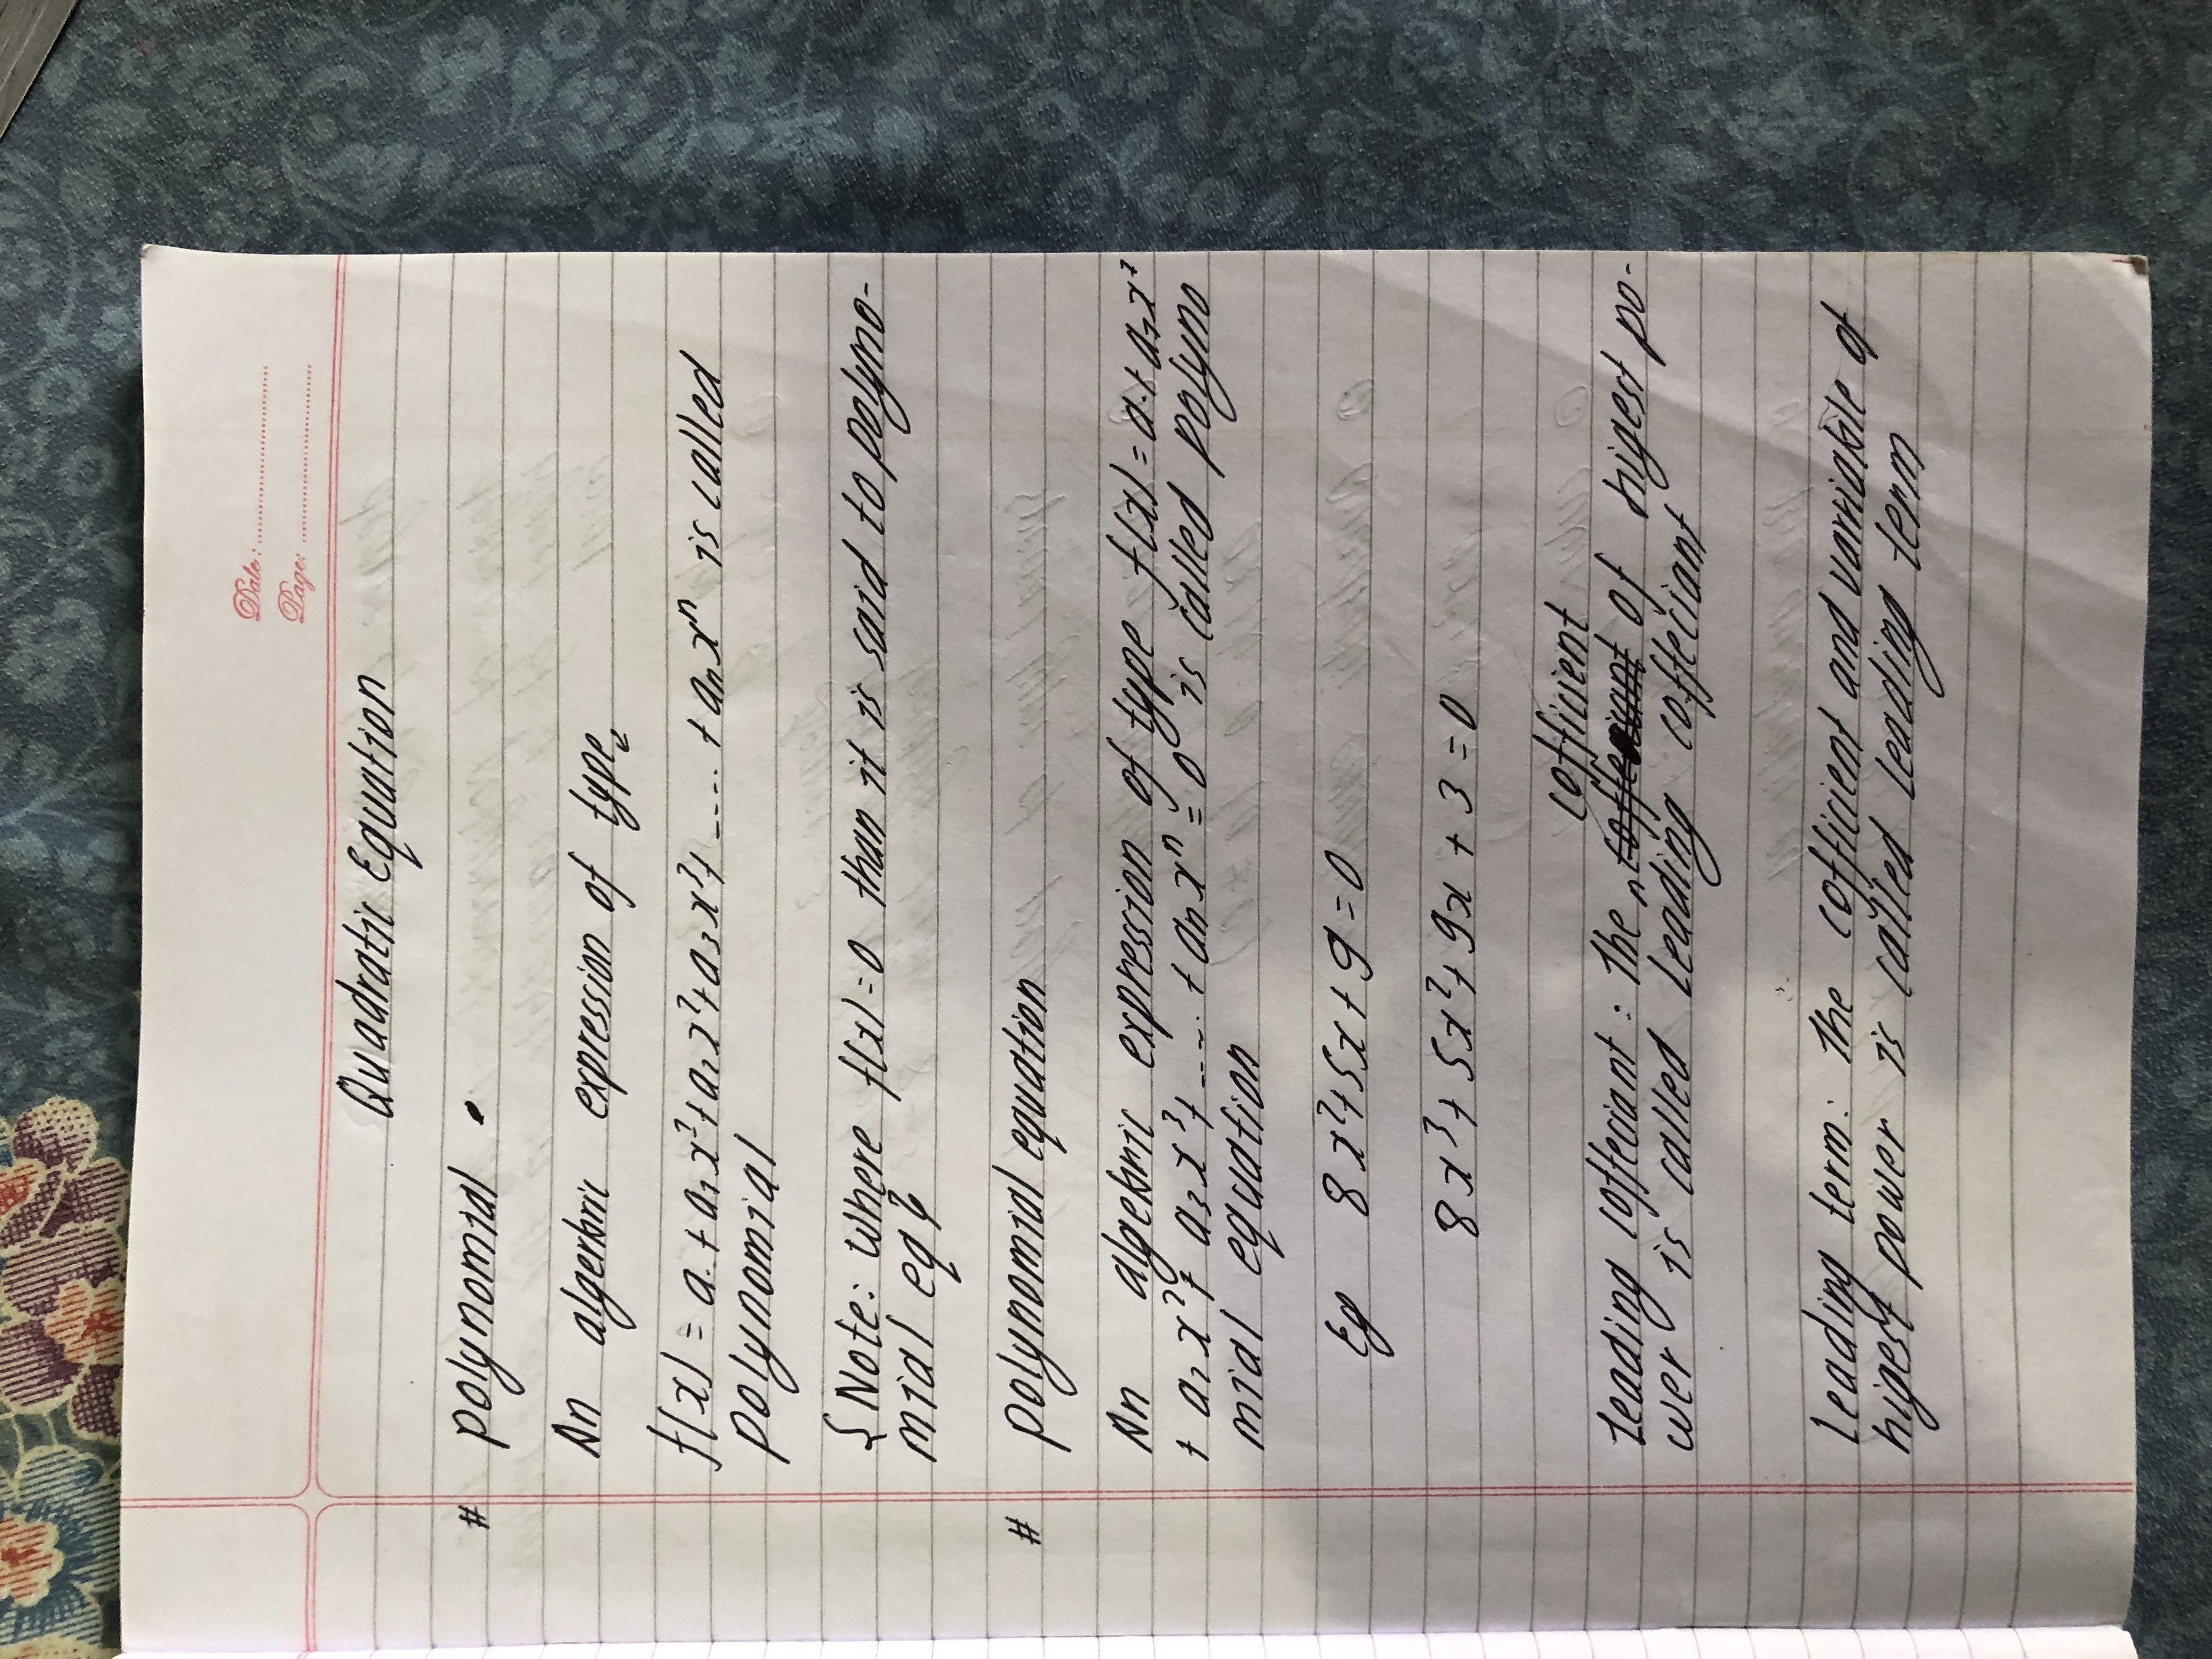 Date:
Page:
Quadratic Equation
# polynomial .
An algerbric expression of type
f(x) = a. + a₁x² + a₂x² + a₃x³ + ---- + aₙxⁿ is called
polynomial
{Note: where f(x) = 0 than it is said to polyno-
mial eqⁿ
# polynomial equation
An algebric expression of type f(x) = a. + a₁x¹
+ a₂x² + a₃x³ + ---- + aₙxⁿ = 0 is called polyno
mial equation
Eg 8x² + 5x + 9 = 0
8x³ + 5x² + 9x + 3 = 0
cofficient
Leading coffeciant : the of higest po-
wer is called leading coffeciant
Leading term: the cofficient and varriable of
higest power is called leading term